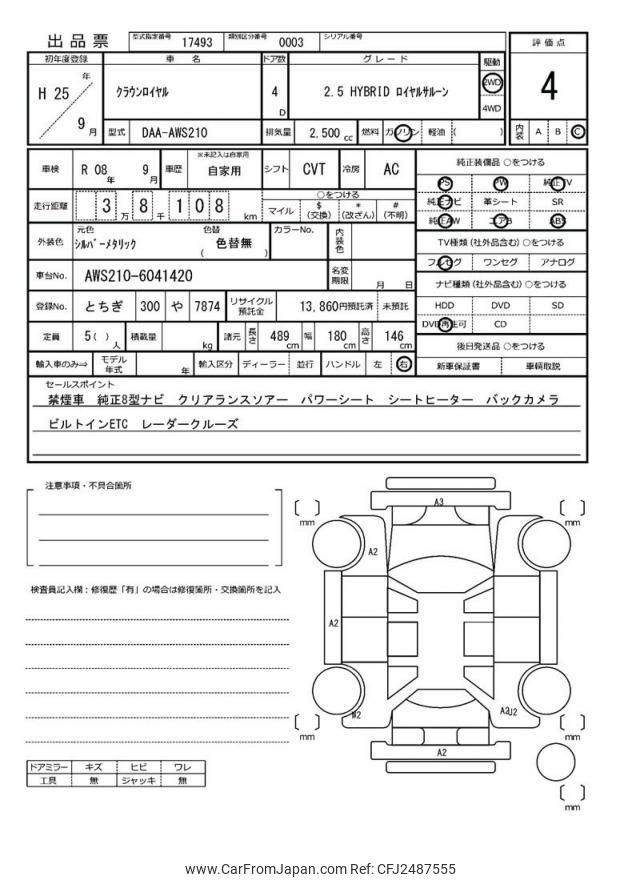 出品票
型式指定番号 17493 類別区分番号 0003 シリアル番号
初年度登録 車名 ドア数 グレード 駆動 評価点
H 25 年 9 月
クラウンロイヤル 4 D 2.5 HYBRID ロイヤルサルーン 2WD 4WD
4
型式 DAA-AWS210 排気量 2,500 cc 燃料 ガソリン 軽油 ( )
内装 A B C
車検 R 08 年 9 月 車歴 ※未記入は自家用 自家用 シフト CVT 冷房 AC
純正装備品 ○をつける
PS PW 純正TV
純正ナビ 革シート SR
純正AW エアB ABS
走行距離 3 万 8 千 1 0 8 km
○をつける
マイル $ (交換) * (改ざん) # (不明)
外装色 元色 シルバーメタリック 色替 ( 色替無 ) カラーNo. 内装色
TV種類 (社外品含む) ○をつける
フルセグ ワンセグ アナログ
車台No. AWS210-6041420 名変期限 月 日
ナビ種類 (社外品含む) ○をつける
HDD DVD SD
DVD再生可 CD
登録No. とちぎ 300 や 7874 リサイクル預託金 13,860円預託済 未預託
定員 5( ) 人 積載量 kg 諸元 長さ 489 cm 幅 180 cm 高さ 146 cm
後日発送品 ○をつける
新車保証書 車輌取説
輸入車のみ⇒ モデル年式 年 輸入区分 ディーラー 並行 ハンドル 左 右
セールスポイント
禁煙車 純正8型ナビ クリアランスソアー パワーシート シートヒーター バックカメラ
ビルトインETC レーダークルーズ
注意事項・不具合箇所
検査員記入欄：修復歴「有」の場合は修復箇所・交換箇所を記入
A3
mm
mm
A2
A2
W2
mm
mm
A2
mm
ドアミラー キズ ヒビ ワレ
工具 無 ジャッキ 無
www.CarFromJapan.com Ref: CFJ2487555